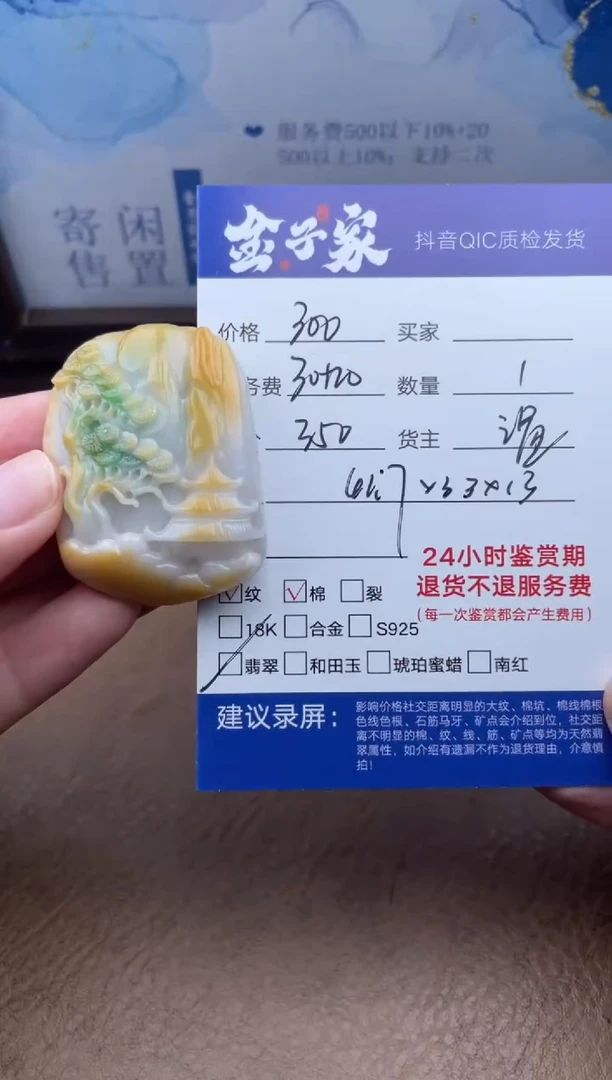 服务费500以下10%+20
500以上10%；支持二次
寄售 闲置
金子家 抖音QIC质检发货
价格 300 买家
务费 30+20 数量 1
350 货主
×33×13
24小时鉴赏期
退货不退服务费
(每一次鉴赏都会产生费用)
纹 棉 裂
18K 合金 S925
翡翠 和田玉 琥珀蜜蜡 南红
建议录屏：
影响价格社交距离明显的大纹、棉坑、棉线棉根
色线色根、石筋马牙、矿点会介绍到位，社交距
离不明显的棉、纹、线、筋、矿点等均为天然翡
翠属性，如介绍有遗漏不作为退货理由，介意慎
拍！